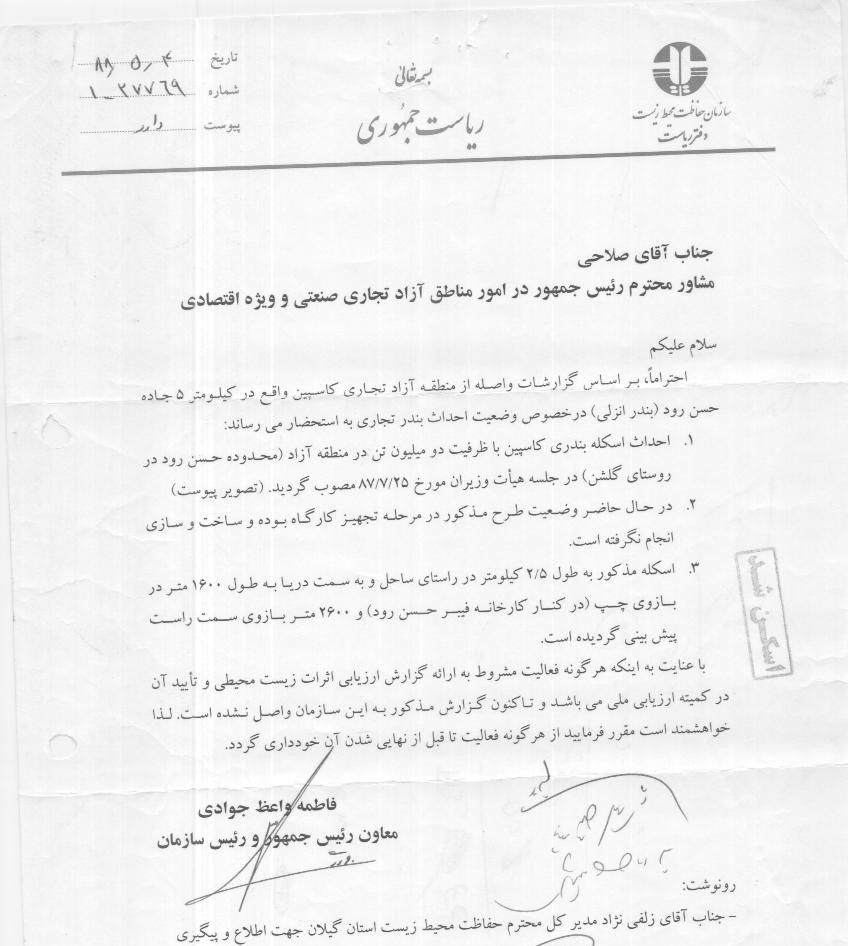 بسمه تعالی
ریاست جمهوری
سازمان حفاظت محیط زیست
دفتر ریاست
تاریخ ۸۸/۵/۴
شماره ۱-۲۷۷۶۹
پیوست دارد
جناب آقای صلاحی
مشاور محترم رئیس جمهور در امور مناطق آزاد تجاری صنعتی و ویژه اقتصادی
سلام علیکم
احتراماً، بر اساس گزارشات واصله از منطقه آزاد تجاری کاسپین واقع در کیلومتر ۵ جاده
حسن رود (بندر انزلی) درخصوص وضعیت احداث بندر تجاری به استحضار می رساند:
۱. احداث اسکله بندری کاسپین با ظرفیت دو میلیون تن در منطقه آزاد (محدوده حسن رود در
روستای گلشن) در جلسه هیأت وزیران مورخ ۸۷/۷/۲۵ مصوب گردید. (تصویر پیوست)
۲. در حال حاضر وضعیت طرح مذکور در مرحله تجهیز کارگاه بوده و ساخت و سازی
انجام نگرفته است.
۳. اسکله مذکور به طول ۲/۵ کیلومتر در راستای ساحل و به سمت دریا به طول ۱۶۰۰ متر در
بازوی چپ (در کنار کارخانه فیبر حسن رود) و ۲۶۰۰ متر بازوی سمت راست
پیش بینی گردیده است.
با عنایت به اینکه هرگونه فعالیت مشروط به ارائه گزارش ارزیابی اثرات زیست محیطی و تأیید آن
در کمیته ارزیابی ملی می باشد و تاکنون گزارش مذکور به این سازمان واصل نشده است. لذا
خواهشمند است مقرر فرمایید از هرگونه فعالیت تا قبل از نهایی شدن آن خودداری گردد.
اسکن شد
فاطمه واعظ جوادی
معاون رئیس جمهور و رئیس سازمان
رونوشت:
- جناب آقای زلفی نژاد مدیر کل محترم حفاظت محیط زیست استان گیلان جهت اطلاع و پیگیری